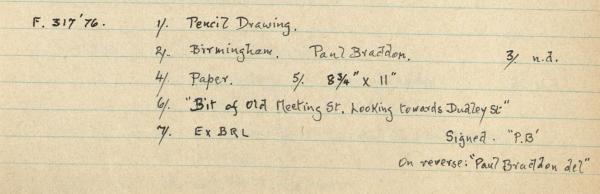 F. 317'76. 1/. Pencil Drawing.
2/. Birmingham. Paul Braddon. 3/ n.d.
4/. Paper. 5/. 8¾" x 11"
6/. "Bit of Old Meeting St. Looking towards Dudley St"
7/. Ex BRL Signed. "P.B'
On reverse: "Paul Braddon del"